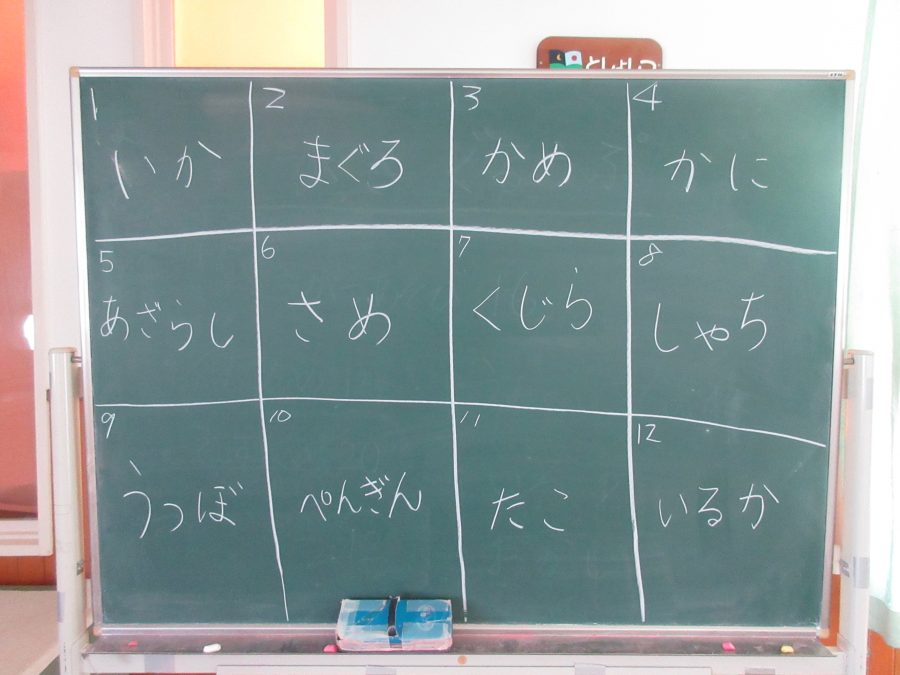 としょしつ
1
いか
2
まぐろ
3
かめ
4
かに
5
あざらし
6
さめ
7
くじら
8
しゃち
9
うつぼ
10
ぺんぎん
11
たこ
12
いるか